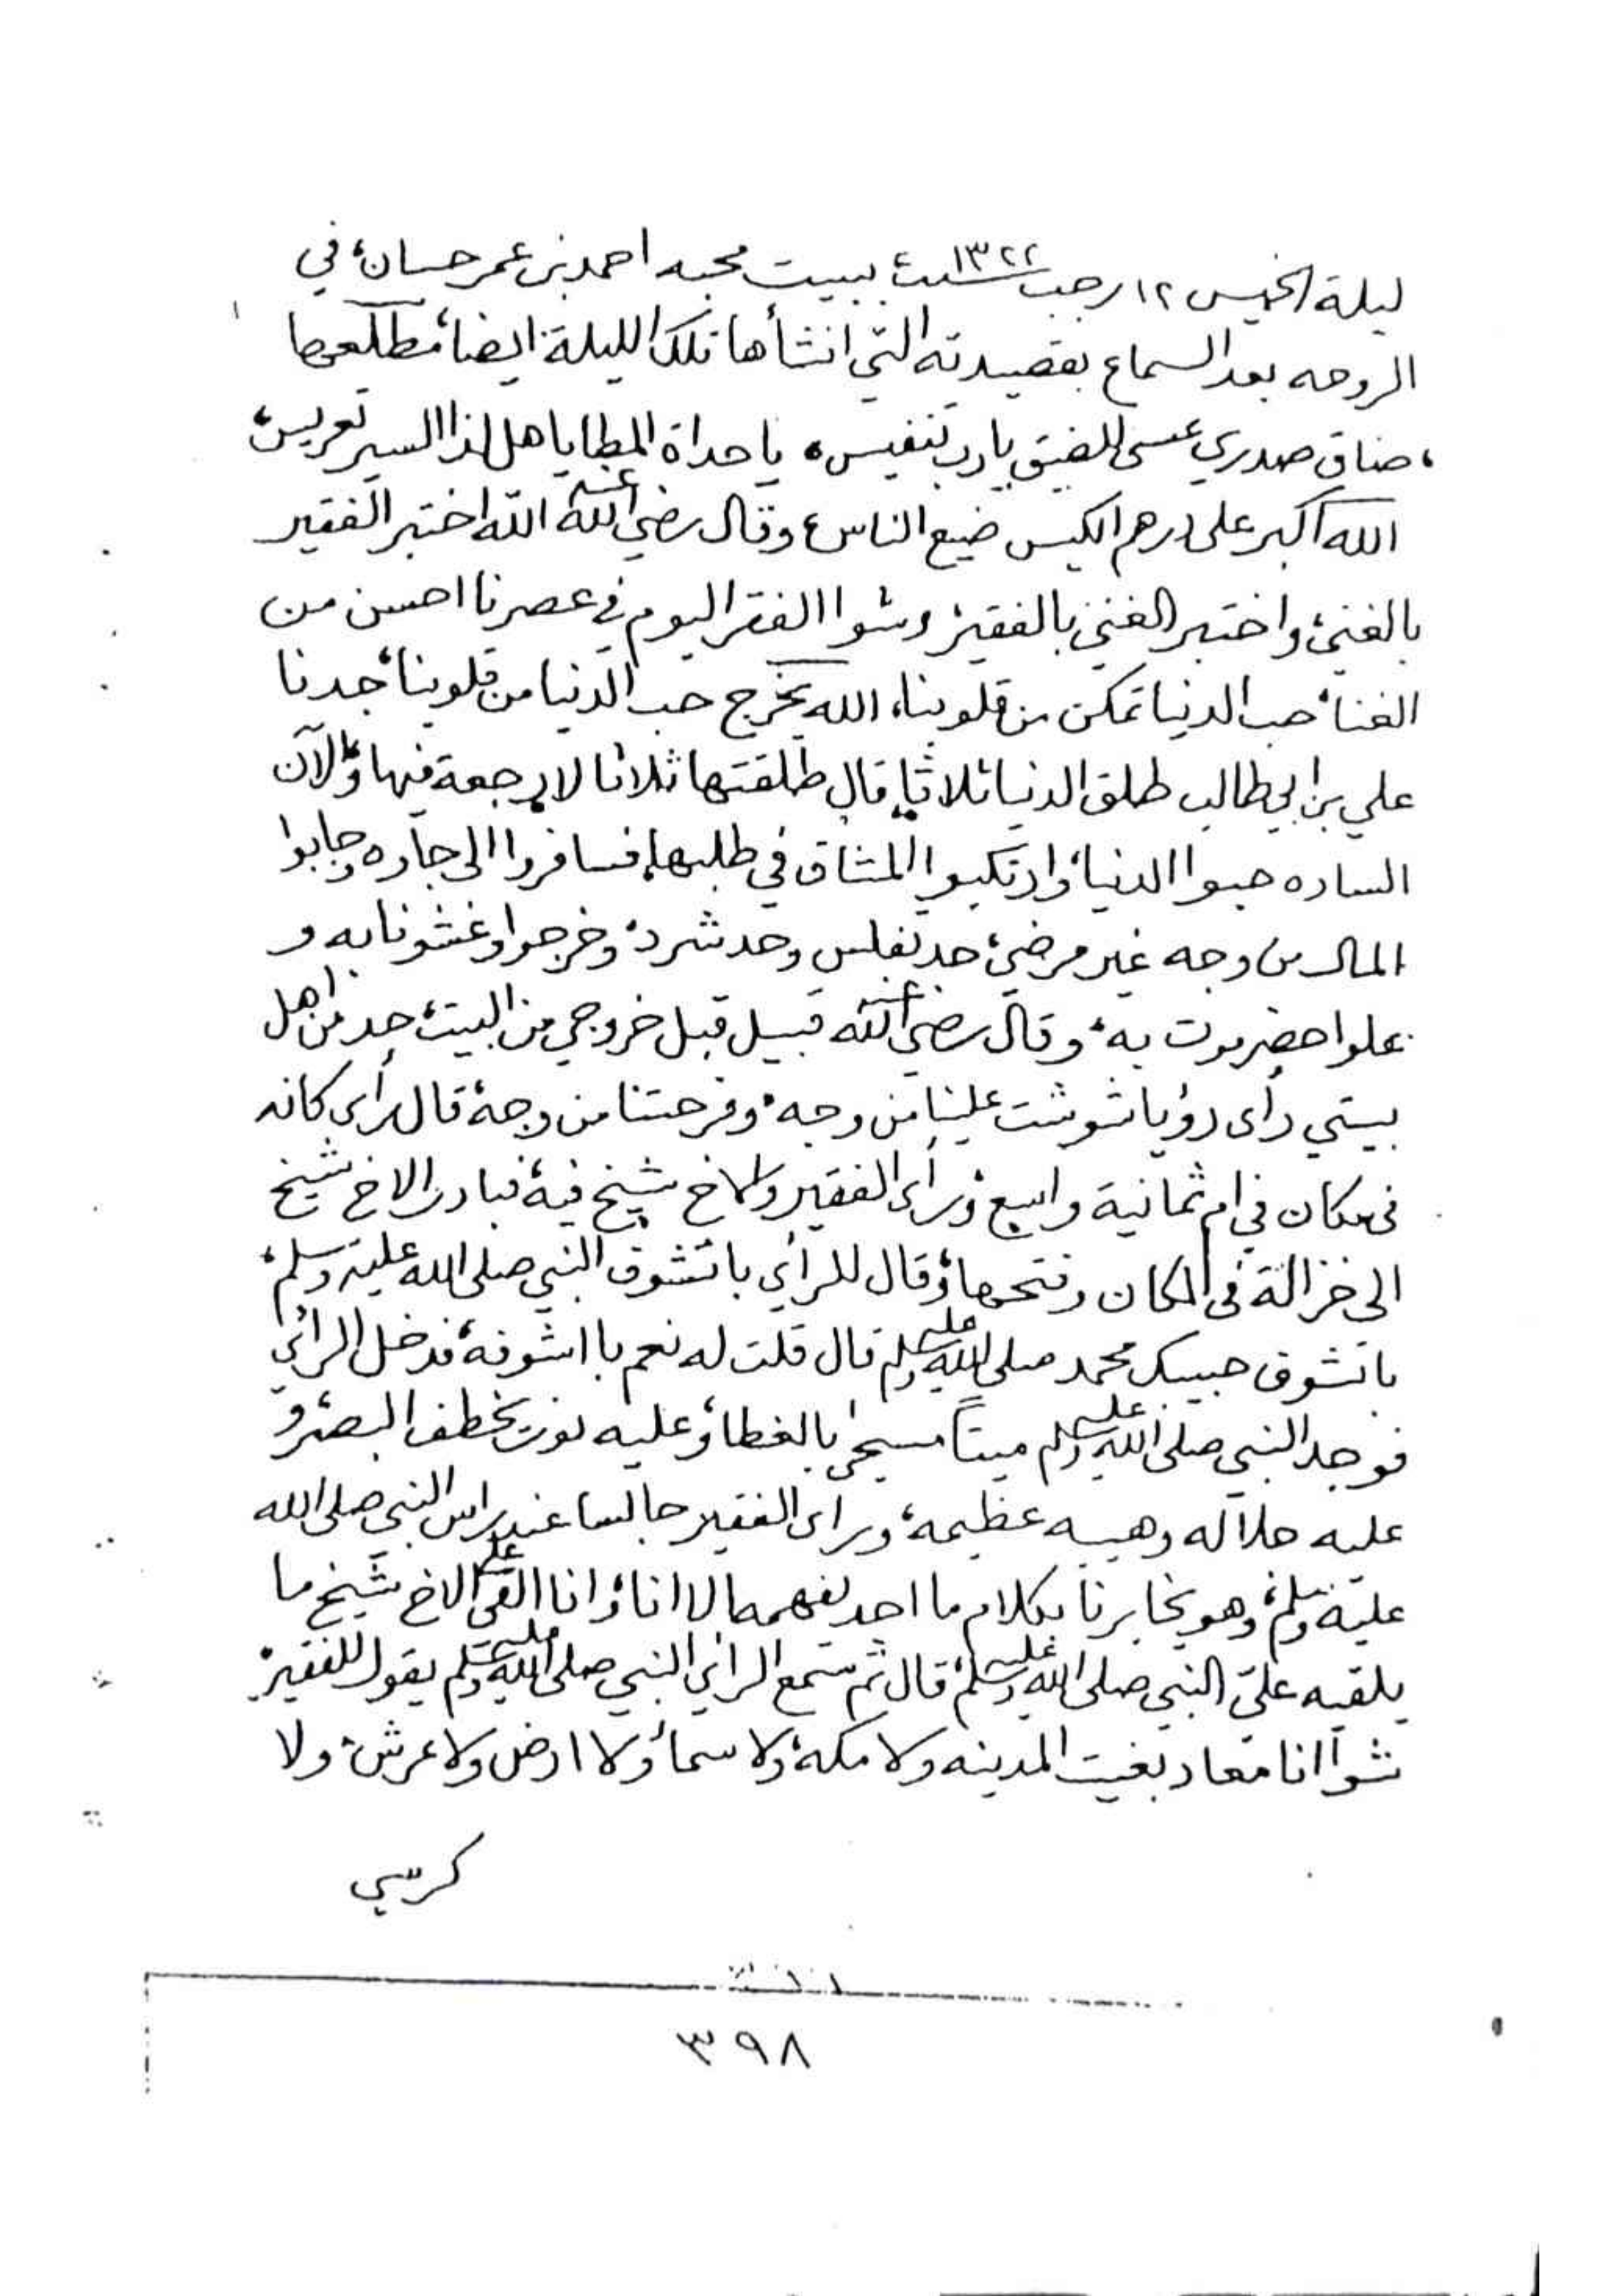 ليلة الخميس ١٢ رجب سنة ١٣٢٢ ببيت محبه احمد بن عمر حسان، في
الروحه بعد السماع بقصيدته التي انشأها تلك الليلة ايضا، مطلعها
، ضاق صدري عسى للضيق يارب تنفيس، يا حداة المطايا هل لذا السير تعريس،
الله اكبر على درهم الكيس ضيع الناس، وقال رضي الله عنه الله اختبر الفقير
بالغني، واختبر الغني بالفقير، وشوا الفقر اليوم في عصرنا احسن من
الغنا، حب الدنيا تمكن من قلوبنا، الله يخرج حب الدنيا من قلوبنا، جدنا
علي بن ابي طالب طلق الدنيا ثلاثا، قال طلقتها ثلاثا لا رجعة فيها، والآن
الساده حبوا الدنيا، وارتكبوا المشاق في طلبها، فسافروا الى جاوه وجابوا
المال من وجه غير مرضي، حد تفلس وحد شرد، وخرجوا وغشونا به و
علوا حضرموت به، وقال رضي الله عنه قبيل قبل خروجي من البيت، حد من اهل
بيتي رأى رؤيا شوشت علينا من وجه، وفرحتنا من وجه، قال رأى كانه
في مكان في ام ثمانية واسع، ورأى الفقير والاخ شيخ فيه، فبادر الاخ شيخ
الى خزانة في المكان وفتحها، وقال للرأي باتشوف النبي صلى الله عليه وسلم،
باتشوف حبيبك محمد صلى الله عليه وسلم قال قلت له نعم با اشوفه، فدخل الرائي
فوجد النبي صلى الله عليه وسلم ميتاً مسجى بالغطا، وعليه نور يخطف البصر، و
عليه جلاله وهيبه عظيمه، ورأى الفقير جالسا عند راس النبي صلى الله
عليه وسلم، وهو يخابرنا بكلام ما احد يفهمه الا انا، وانا القي على الاخ شيخ ما
يلقيه علي النبي صلى الله عليه وسلم، قال ثم سمع الرائي النبي صلى الله عليه وسلم يقول للفقير،
شوا انا معاد بغيت المدينه ولا مكه، ولا سما، ولا ارض ولا عرش، ولا
كرسي
٣٩٨